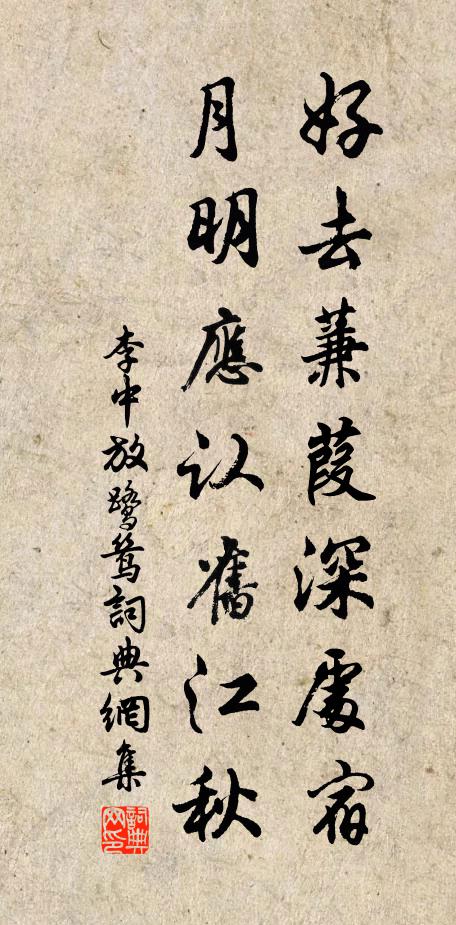 好去蒹葭深處宿
月明應认舊江秋
李中放鹭鸶詞典網集
詞典网印